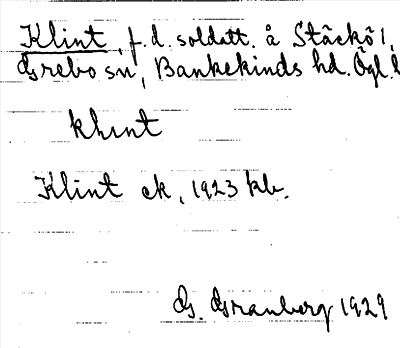 Klint, f.d. soldatt. å Stäckö 1,
Grebo sn, Bankekinds hd. Ögl.
khnt
Klint ek, 1923 kb.
G. Granberg 1929